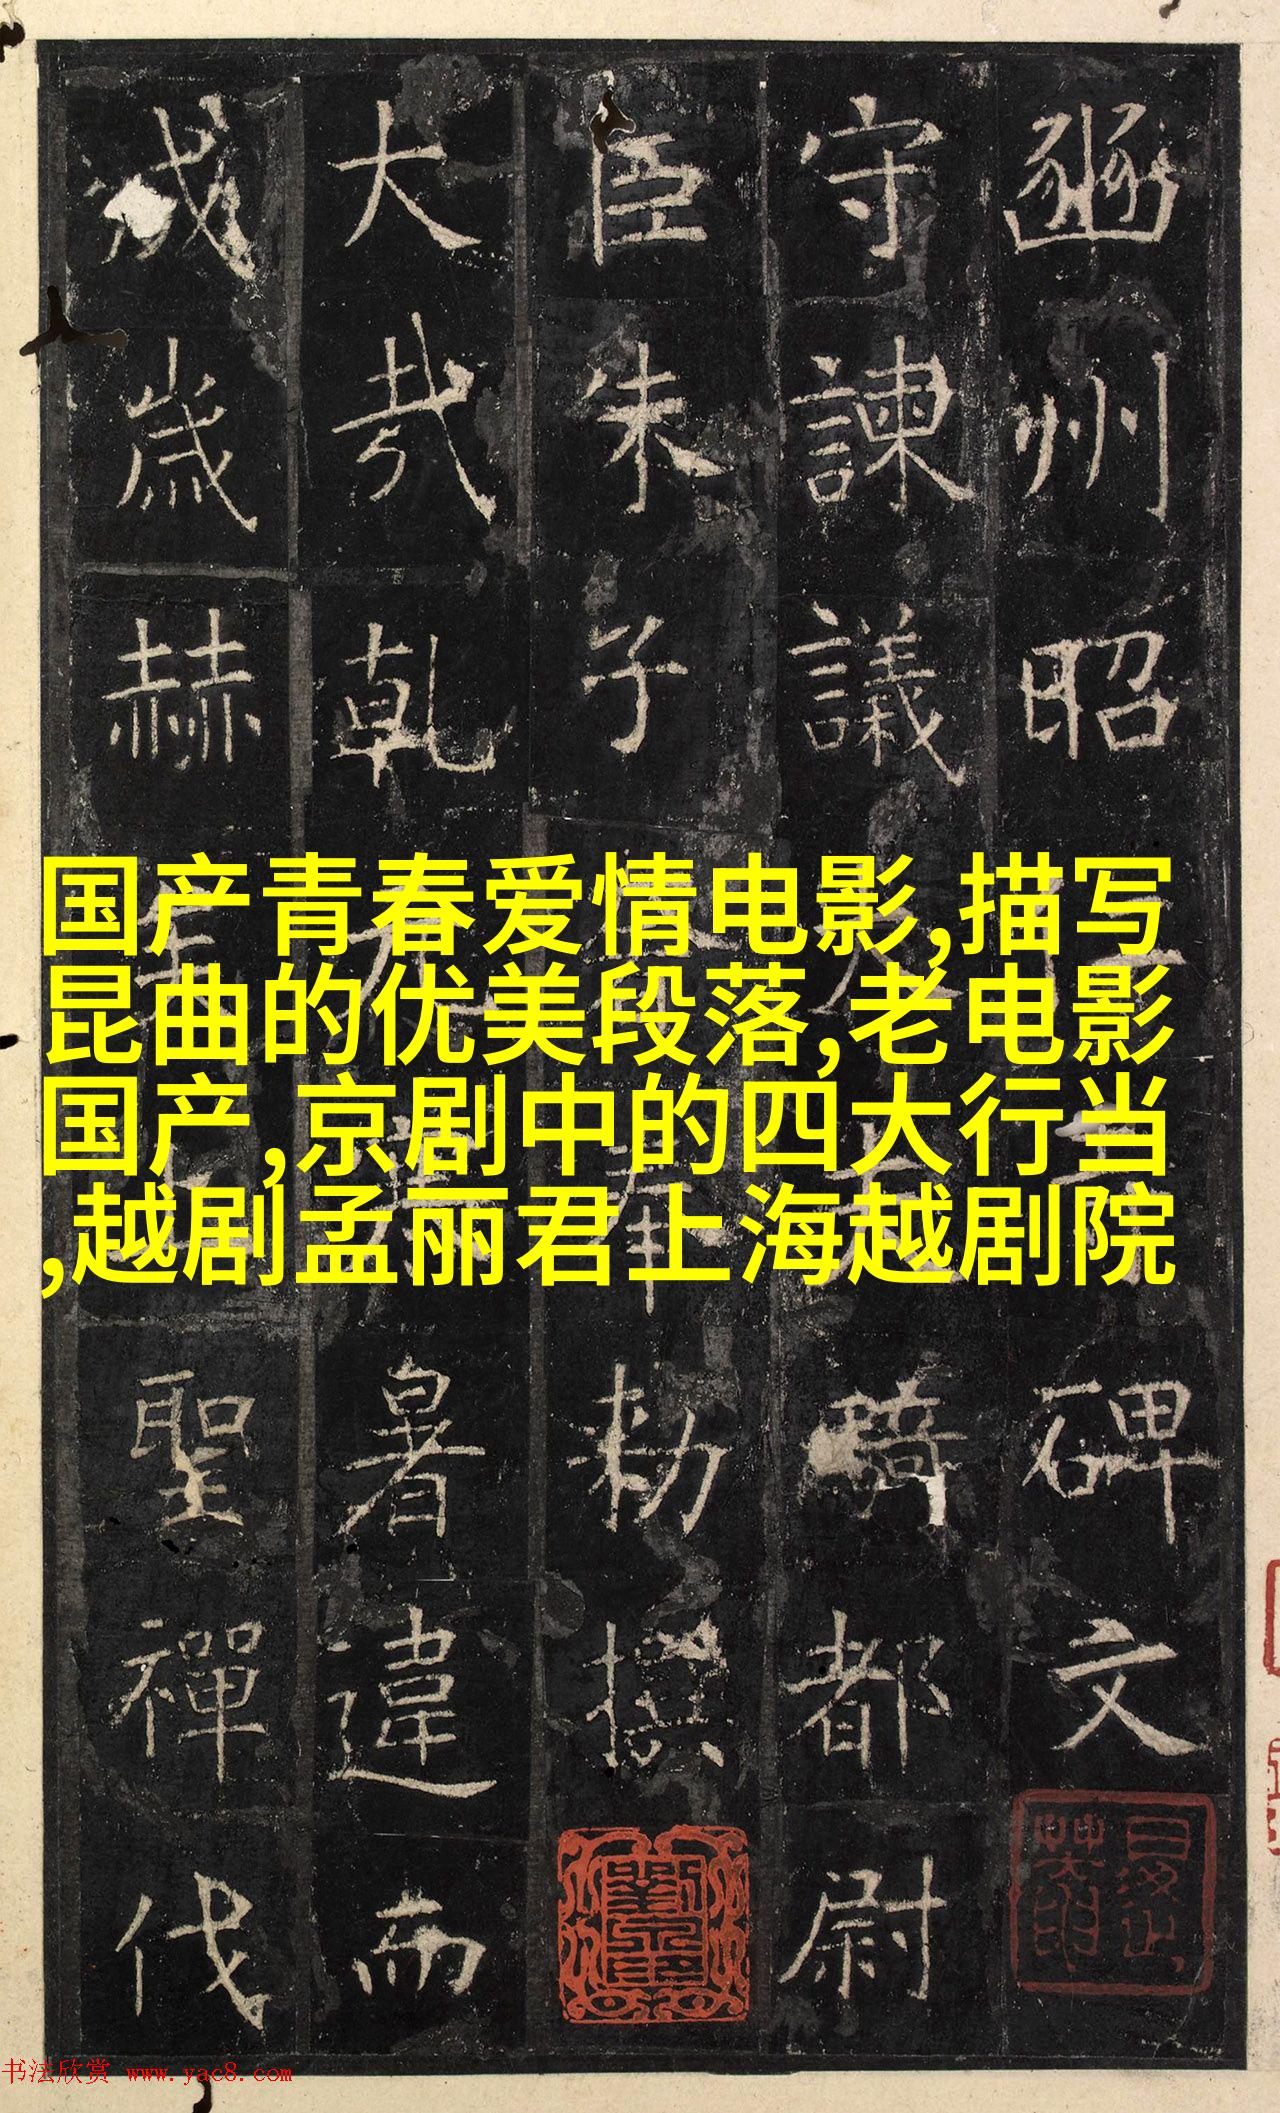 豳州昭仁寺碑文
守諫議大夫騎都尉
臣朱子奢奉勑撰
大哉乾元
暑違而
成歲赫
聖禪代
国产青春爱情电影,描写
昆曲的优美段落,老电影
国产,京剧中的四大行当
,越剧孟丽君上海越剧院
书法欣赏 www.yac8.com